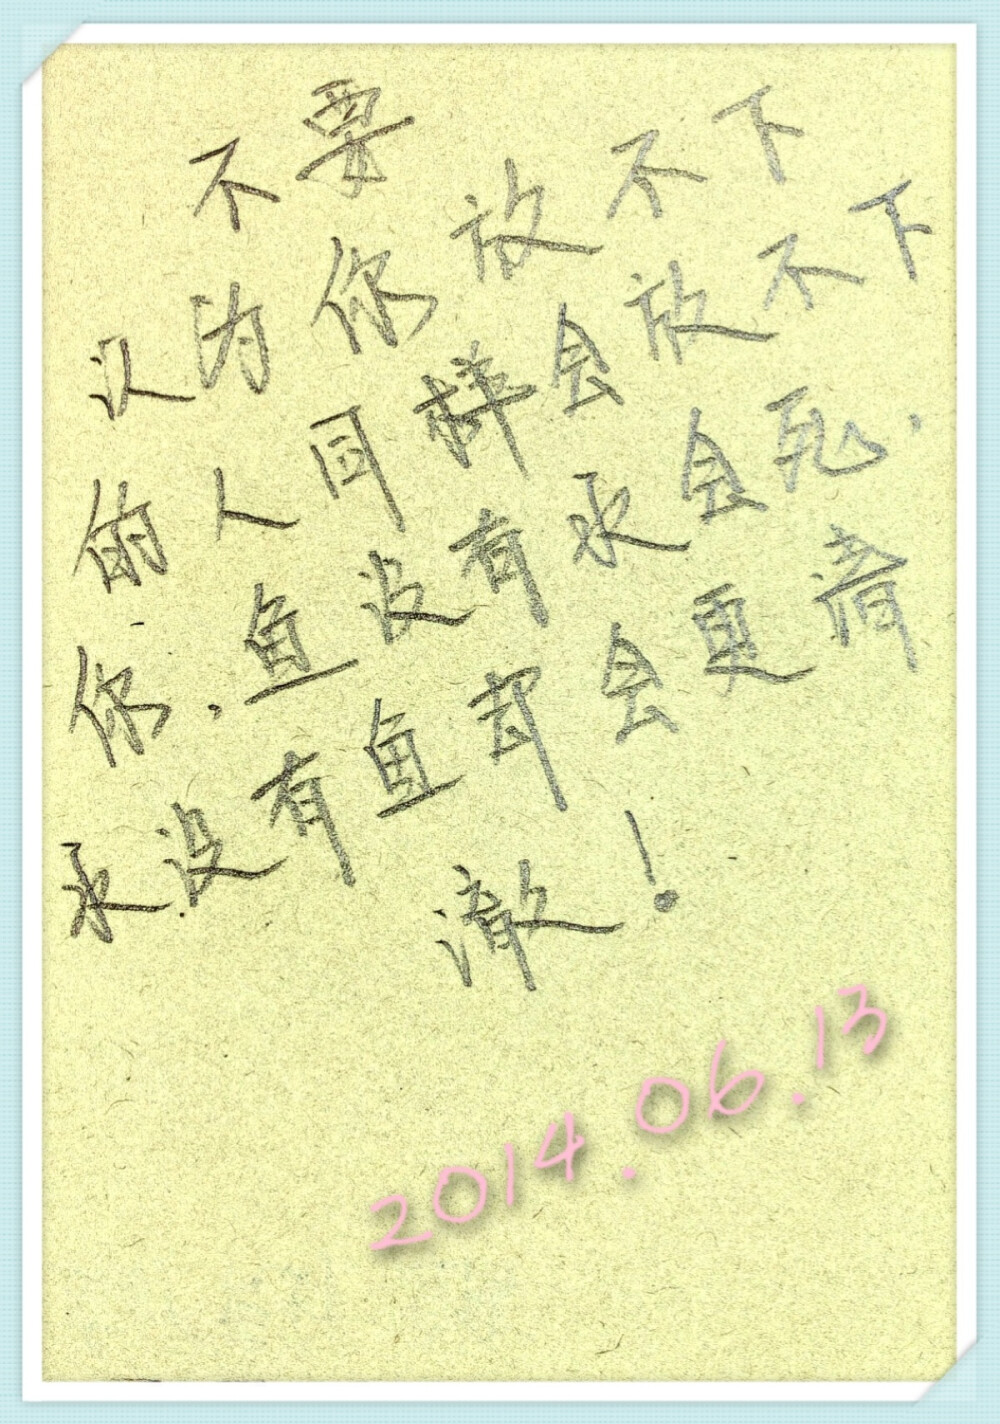 不要
认为你放不下
的人同样会放不下
你，鱼没有水会死，
水没有鱼却会更清
澈！
2014.06.13